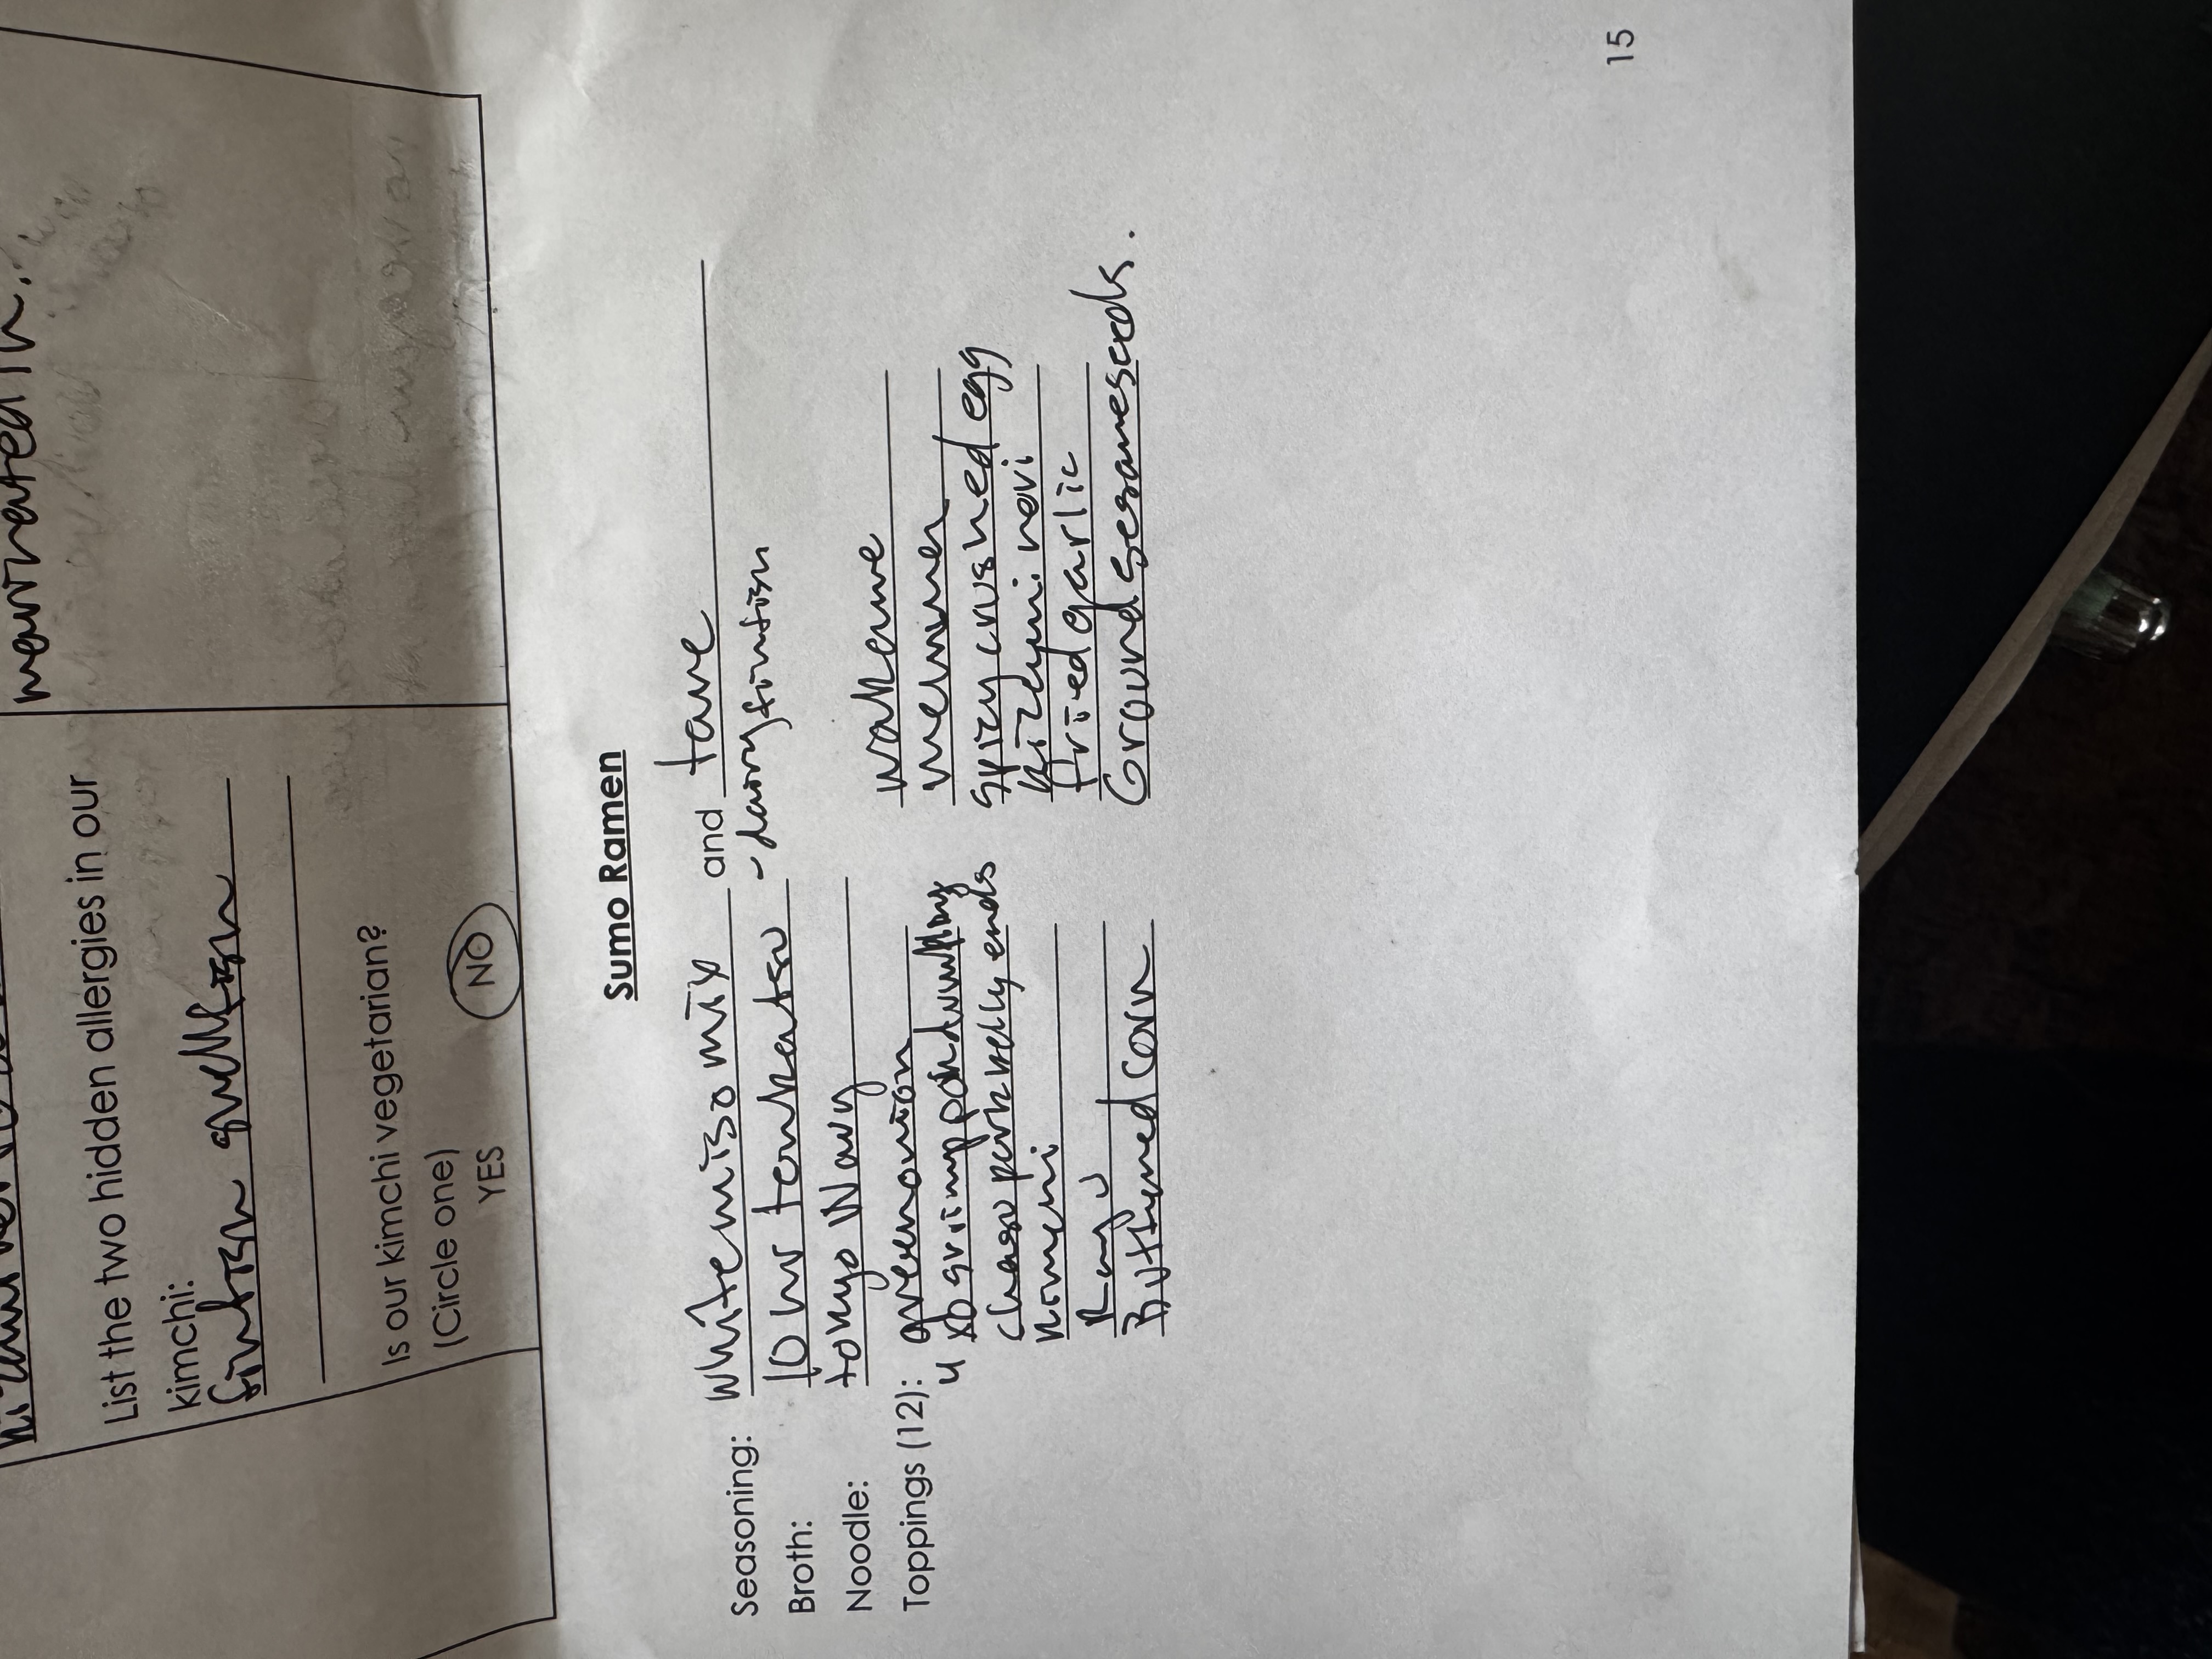 marinated in.
List the two hidden allergies in our
kimchi:
finfish shellfish
Is our kimchi vegetarian?
(Circle one)
YES NO
Sumo Ramen
Seasoning: white miso mix and tare
Broth: 10 hr tonkatsu - dairy finfish
Noodle: tokyo Wavy
Toppings (12): green onion wakame
4 xb shrimp pork dumpling menma
chasu pork belly ends spicy crushed egg
kimchi kizami nori
fried garlic
Buttered corn Ground sesame seeds.
15